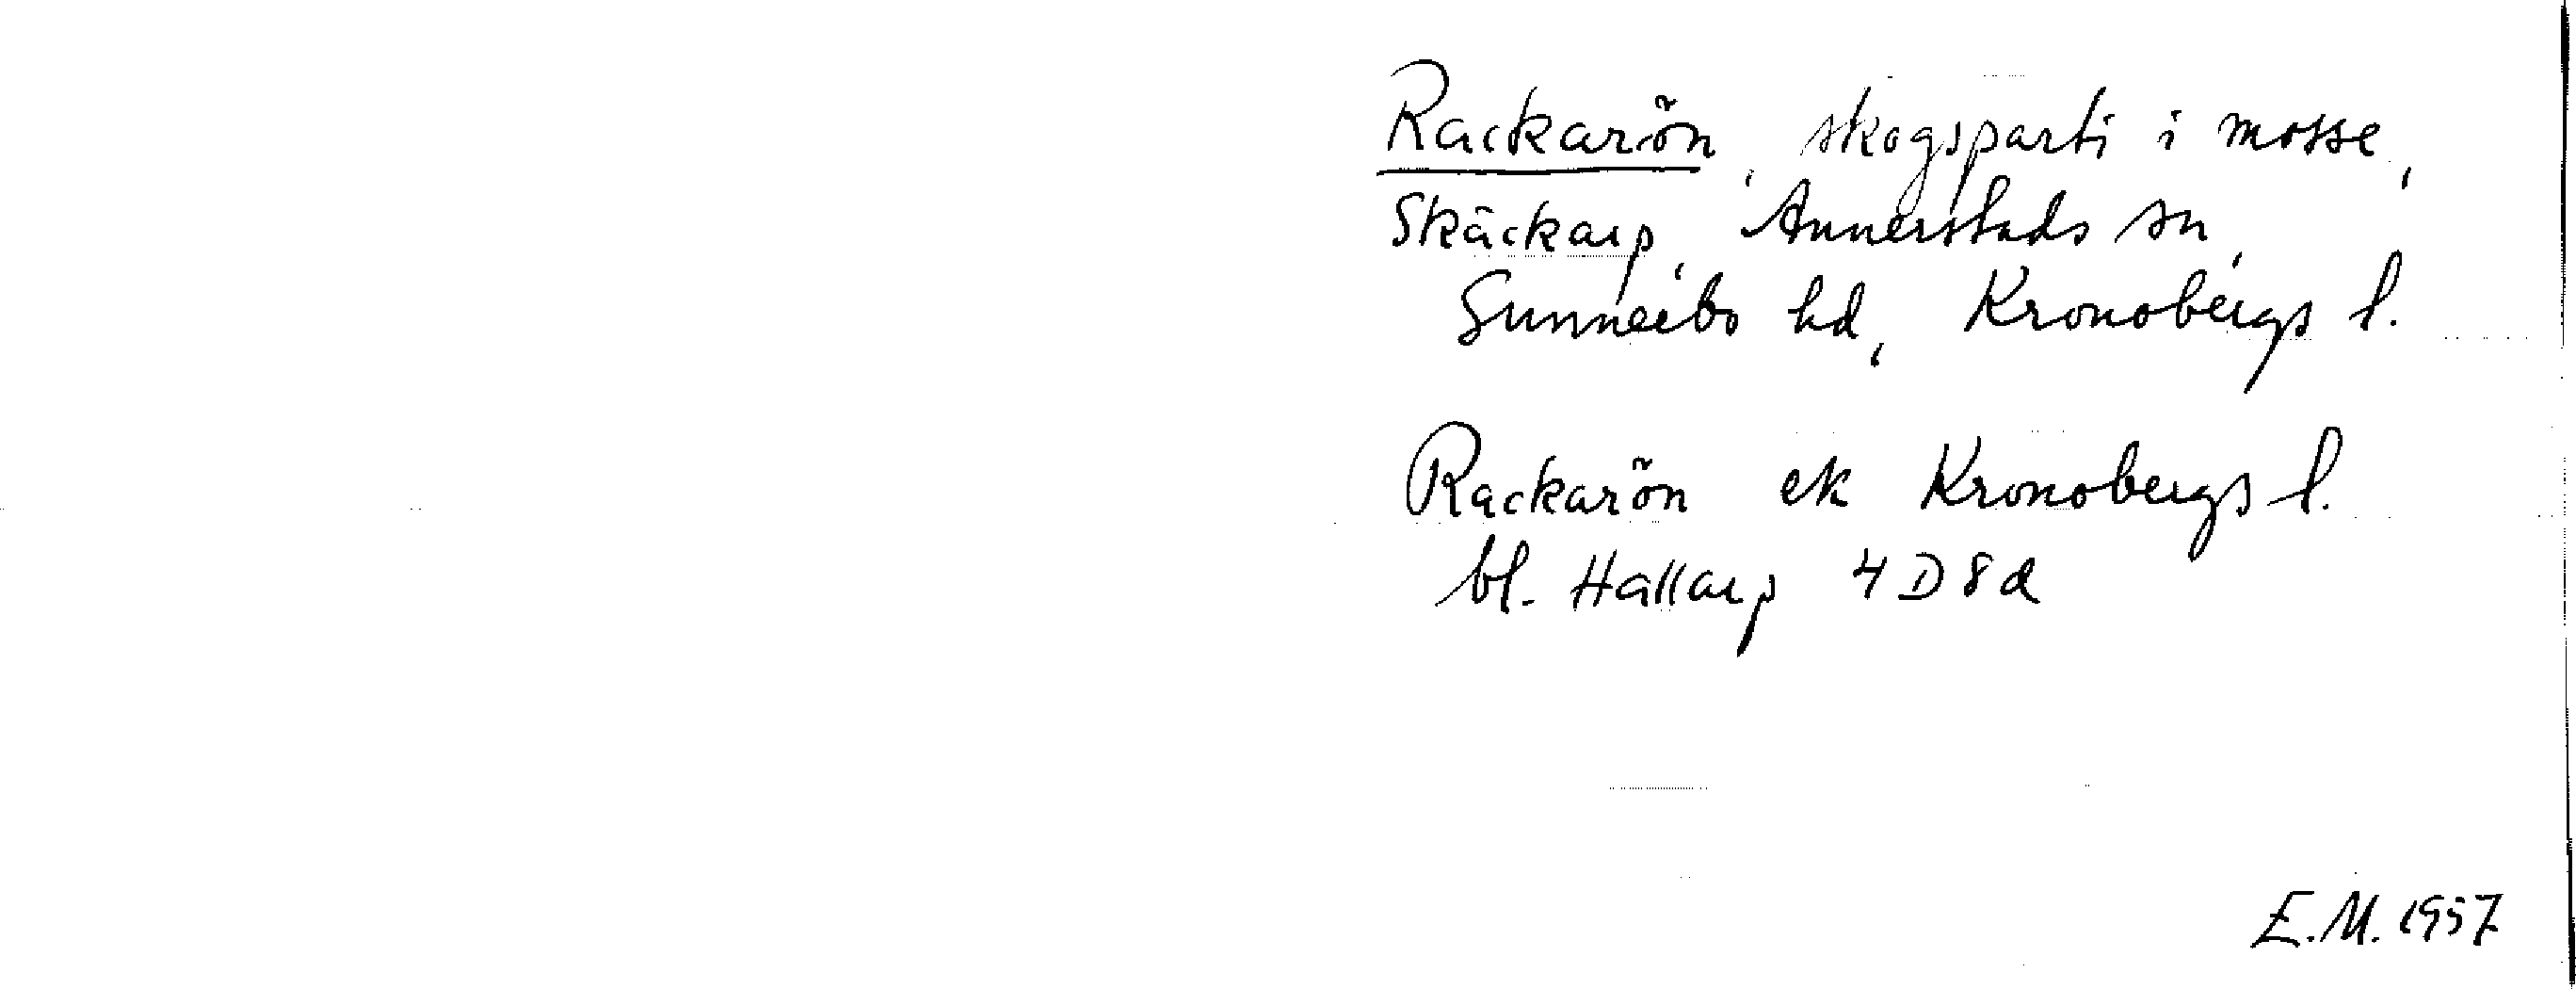 Rackarön, skogsparti i mosse,
Skäckarp, Annerstads sn,
Sunnerbo hd, Kronobergs l.
Rackarön ek Kronobergs l.
bl. Hallarp 4D8d
E.M. 1957